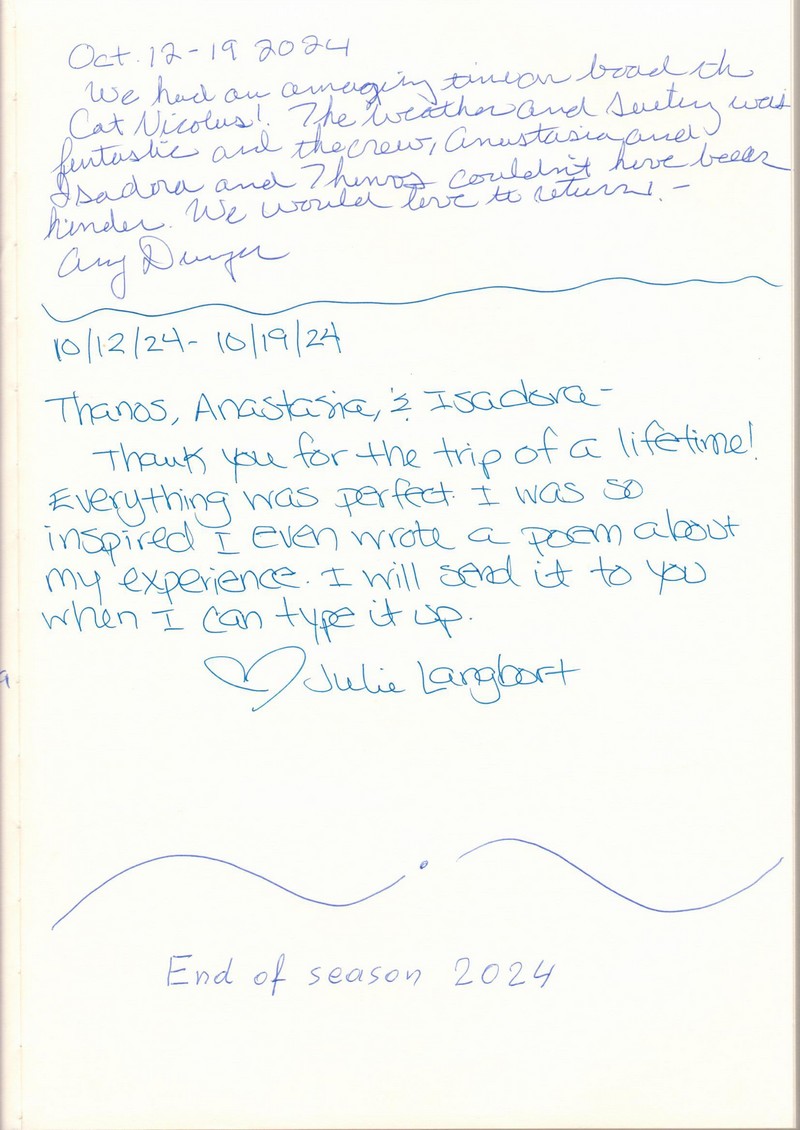 Oct. 12-19 2024
We had an amazing time on board th
Cat Nicolus!. The weather and was
fantastic and the crew, Anastasia and
Isadora and Thanos couldn't have been
kinder. We would love to return!. -
Amy
10/12/24- 10/19/24
Thanos, Anastasia, & Isadora-
Thank you for the trip of a lifetime!
Everything was perfect. I was so
inspired I even wrote a poem about
my experience. I will send it to you
when I can type it up.
♡ Julie Langbort
End of season 2024